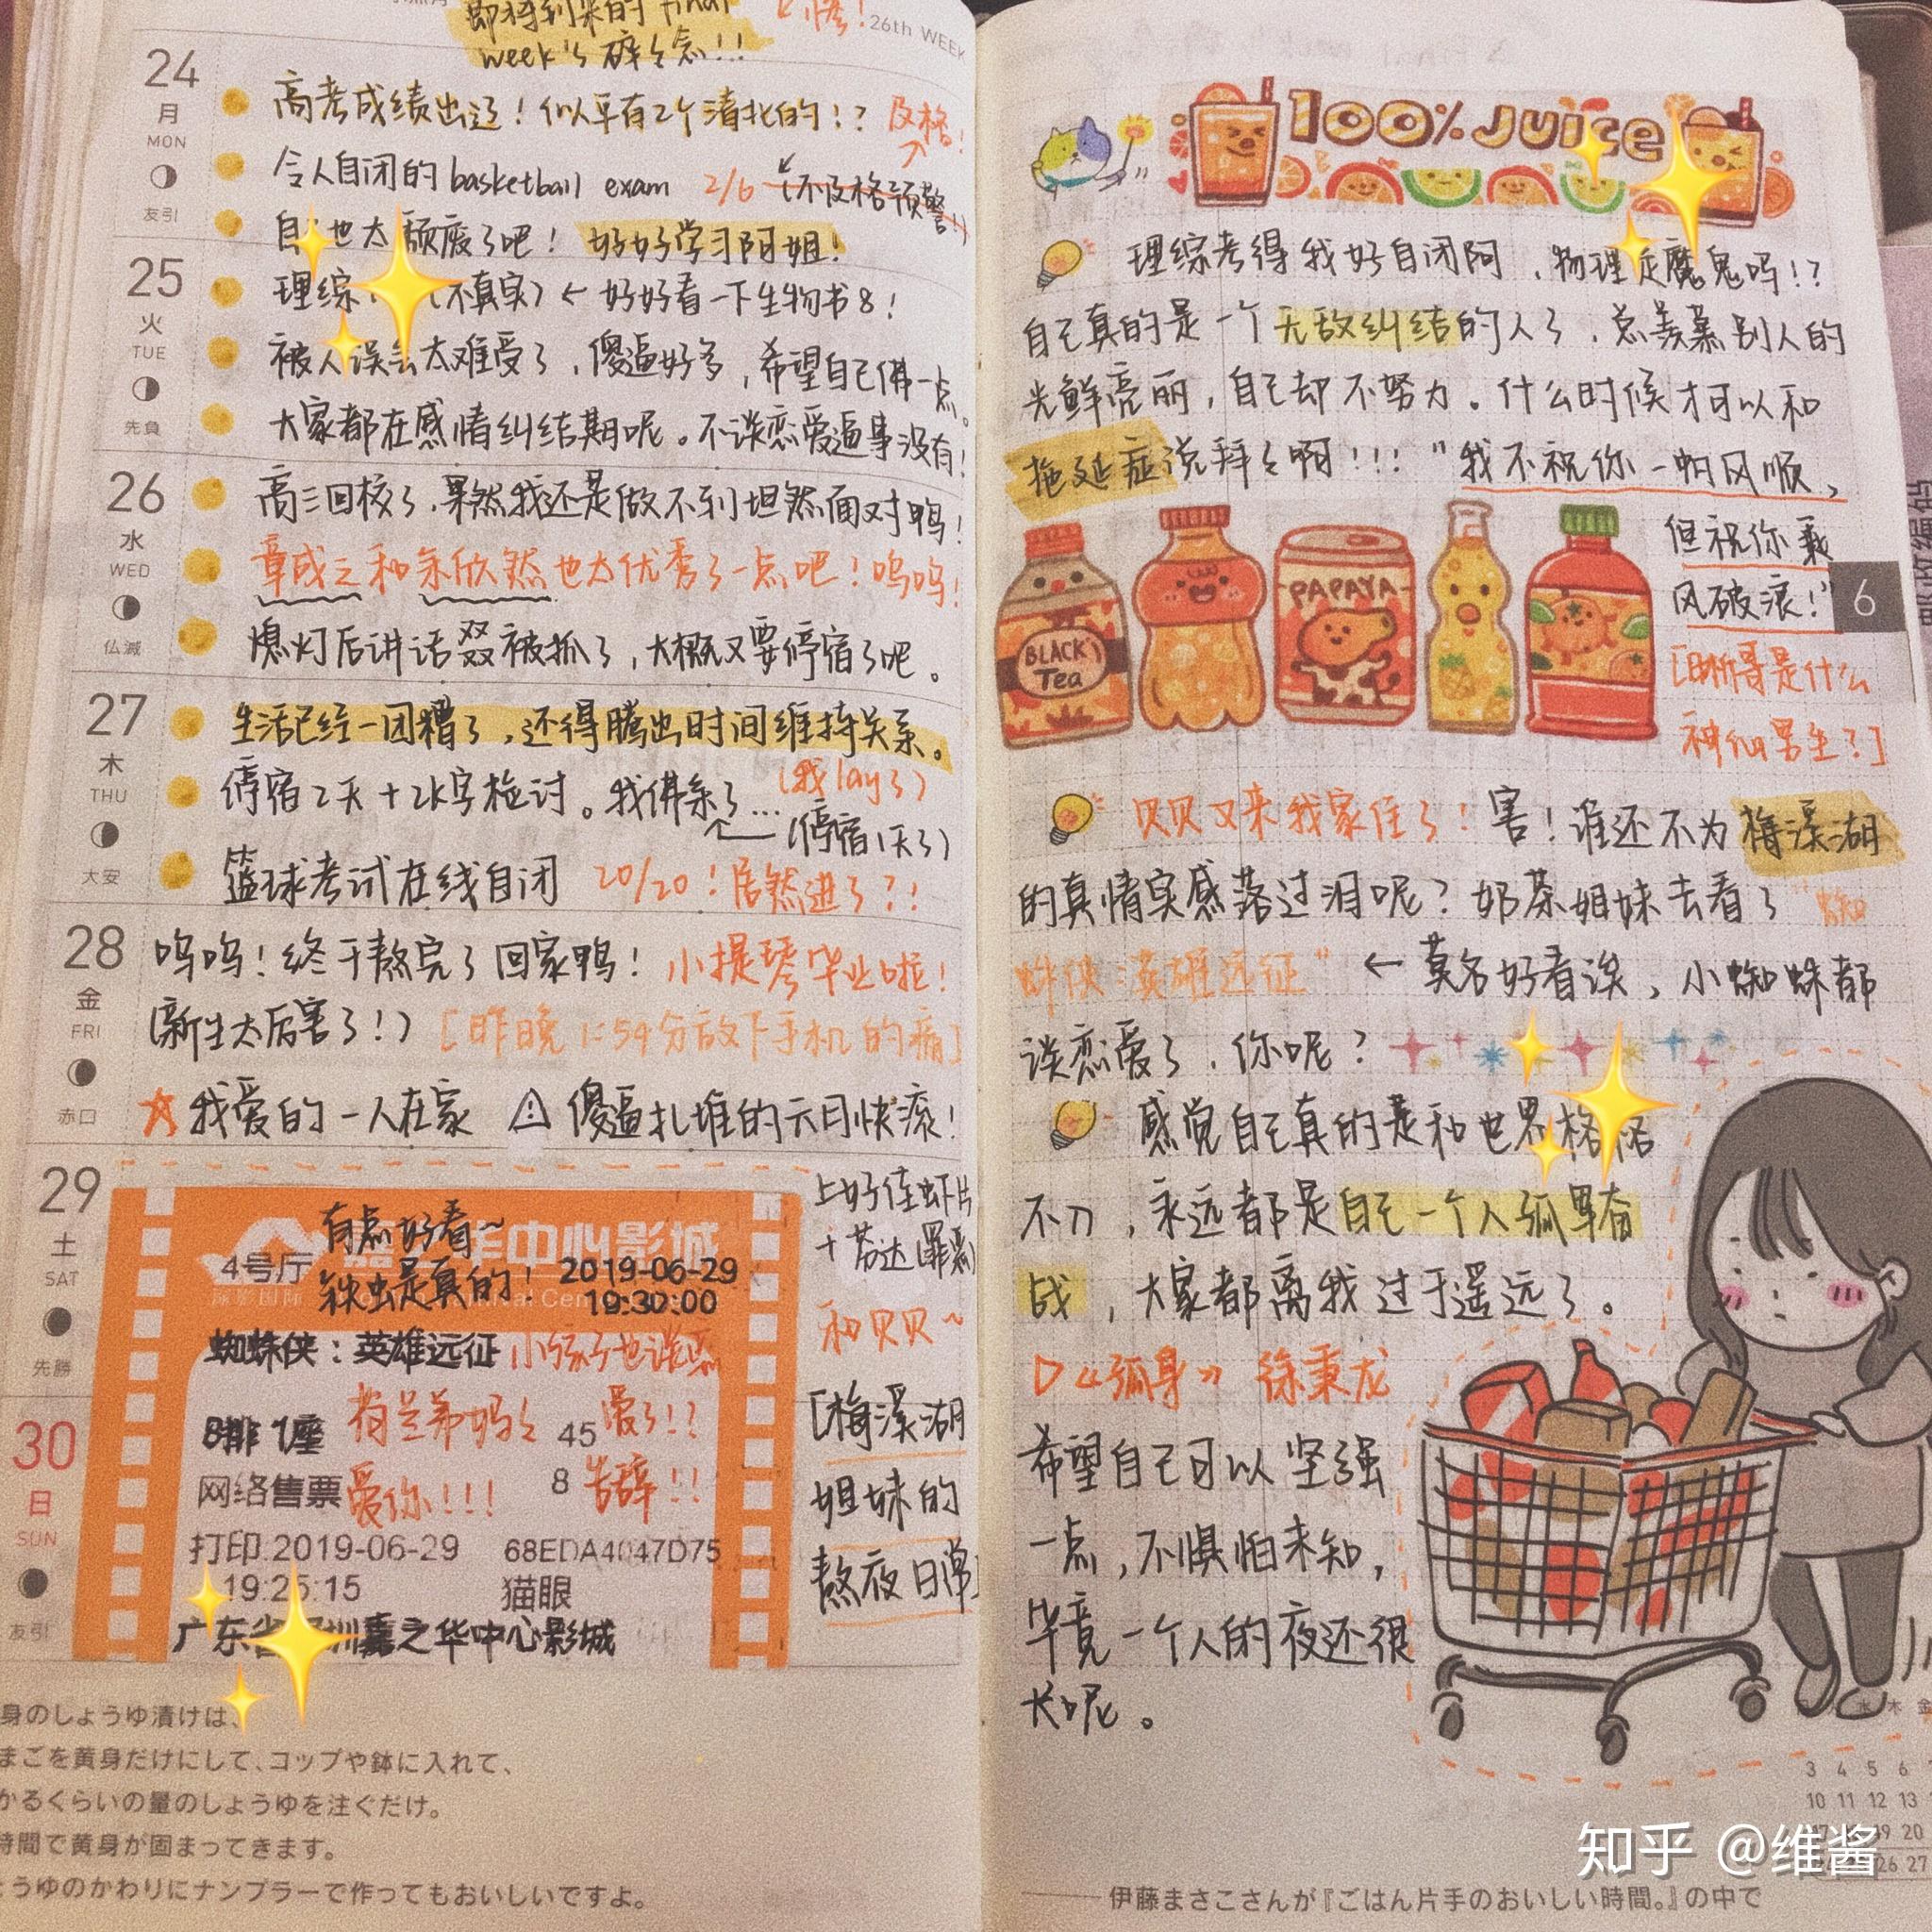 即将到来的final
week's 碎々念!!!
26th WEEK
24
月
MON
友引
高考成绩出辽!似乎有2个清北的!?
及格!
令人自闭的basketball exam 2/6 (不及格预警!)
也太颓废了吧! 好好学习阿姐!
25
火
TUE
先負
理综 (不真实) ← 好好看一下生物书8!
被人误会太难受了,傻逼好多,希望自己佛一点。
大家都在感情纠结期呢。不谈恋爱逼事没有!
26
水
WED
仏滅
高三回校了.果然我还是做不到坦然面对鸭!
章成之和余欣然也太优秀了一点吧!呜呜!
熄灯后讲话双双被抓了,大概又要停宿了吧。
27
木
THU
大安
生活已经一团糟了,还得腾出时间维持关系。
停宿2天+2k字检讨。我佛系了...(我lay了)
(停宿1天了)
篮球考试在线自闭 20/20!居然进了?!
28
金
FRI
赤口
呜呜!终于熬完了回家鸭!小提琴毕业啦!
(新生太厉害了!)[昨晚1:54分放下手机的痛]
我爱的一人在家 傻逼扎堆的六月快滚!
29
土
SAT
先勝
有点好看~
4号厅
铁虫是真的!
2019-06-29
19:30:00
蜘蛛侠:英雄远征 小孩子也谈恋
8排 1座
荷兰弟妈妈 45 爱了!?
网络售票 爱你!!! 8 告辞!!
打印:2019-06-29
19:25:15
68EDA4047D75
猫眼
广东省深圳嘉之华中心影城
上好佳虾片
+芬达(罪恶)
和贝贝~
[梅溪湖
姐妹的
熬夜日常]
30
日
SUN
友引
身のしょうゆ漬けは、
まごを黄身だけにして、コップや鉢に入れて、
かるくらいの量のしょうゆを注ぐだけ。
時間で黄身が固まってきます。
ょうゆのかわりにナンプラーで作ってもおいしいですよ。
100% Juice
理综考得我好自闭阿,物理是魔鬼吗!?
自己真的是一个无敌纠结的人了,总羡慕别人的
光鲜亮丽,自己却不努力。什么时候才可以和
拖延症说拜々啊!!!"我不祝你一帆风顺,
但祝你乘
风破浪!"
6
[日昕哥是什么
神仙男生?]
BLACK
Tea
PAPAYA
贝贝又来我家住了!害!谁还不为梅溪湖
的真情实感落过泪呢?奶茶姐妹去看了"蜘
蛛侠:英雄远征" ← 莫名好看诶,小蜘蛛都
谈恋爱了,你呢?
感觉自己真的是和世界格格
不入,永远都是自己一个人孤军奋
战,大家都离我过于遥远了。
▷《孤身》 徐秉龙
希望自己可以坚强
一点,不惧怕未知,
毕竟一个人的夜还很
长呢。
水 木 金
3 4 5 6
10 11 12 13
17 19 20
26 27
知乎 @维酱
伊藤まさこさんが『ごはん片手のおいしい時間。』の中で